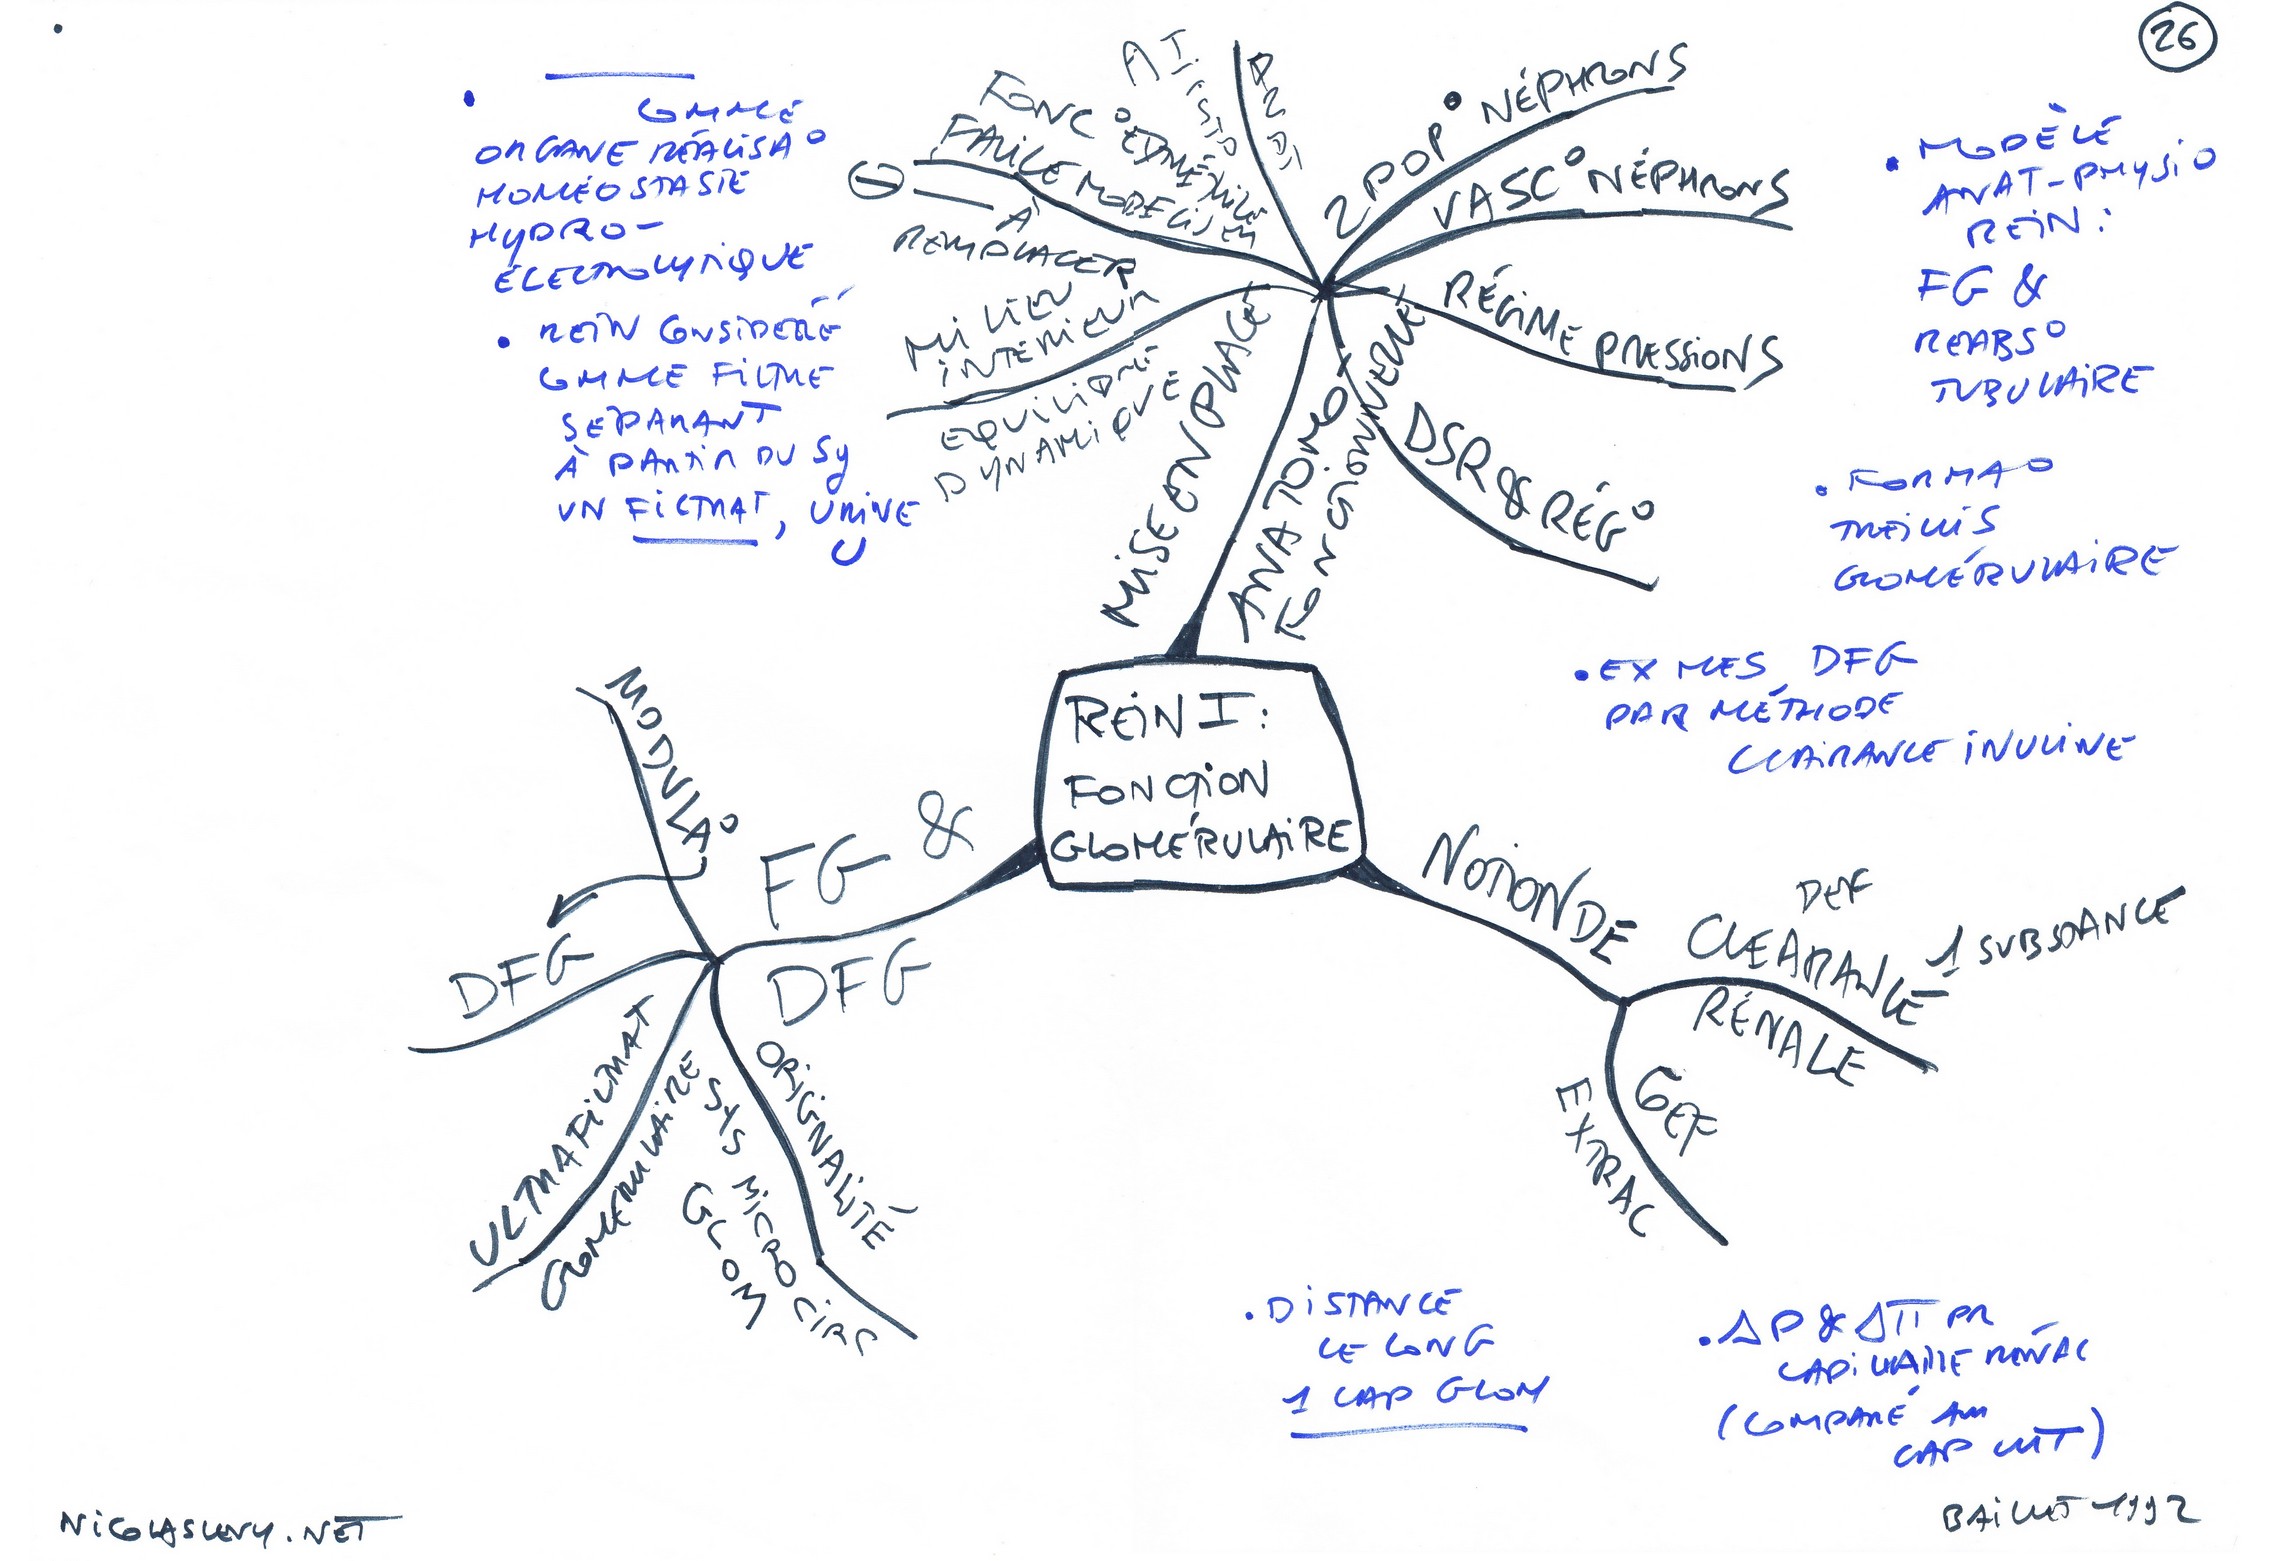 26
COMME
ORGANE RÉALISA°
HOMÉOSTASIE
HYDRO-
ÉLECTROLYTIQUE
• REIN CONSIDÉRÉ
COMME FILTRE
SÉPARANT
À PARTIR DU SG
UN FILTRAT, URINE
U
FONC°
FACILE
À
REMPLACER
MILIEU
INTÉRIEUR
EQUILIBRE
DYNAMIQUE
MISE EN PLACE
2 POP° NÉPHRONS
VASC° NÉPHRONS
RÉGIME PRESSIONS
DSR & RÉG°
ANATOMO
FONCTIONNELLE
• MODÈLE
ANAT-PHYSIO
REIN:
FG &
REABS°
TUBULAIRE
• FORMA°
TREILLIS
GLOMÉRULAIRE
• EX MES DFG
PAR MÉTHODE
CLAIRANCE INULINE
REIN I:
FONCTION
GLOMÉRULAIRE
MODULA°
FG &
DFG
DFG
ULTRAFILTRAT
GLOMÉRULAIRE
ORIGINALITÉ
SYS MICROCIRC
GLOM
NOTION DE
DEF
CLEARANCE 1 SUBSTANCE
RÉNALE
COEF
EXTRAC
• DISTANCE
LE LONG
1 CAP GLOM
• ΔP & Δπ PR
CAPILLAIRE RÉNAL
(COMPARÉ AU
CAP MT)
NICOLASLEVY.NET
BAILLET 1992